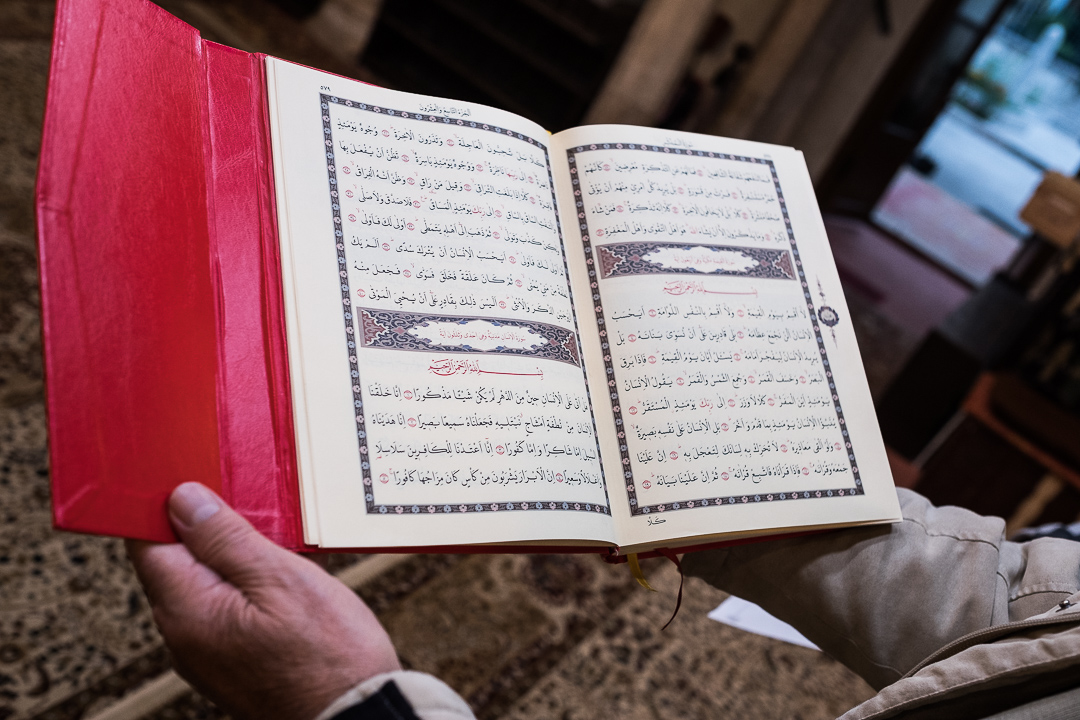 سورة المدثر
فَمَا تَنْفَعُهُمْ شَفَاعَةُ الشَّافِعِينَ فَمَا لَهُمْ عَنِ التَّذْكِرَةِ مُعْرِضِينَ كَأَنَّهُمْ
حُمُرٌ مُسْتَنْفِرَةٌ فَرَّتْ مِنْ قَسْوَرَةٍ بَلْ يُرِيدُ كُلُّ امْرِئٍ مِنْهُمْ أَنْ يُؤْتَى
صُحُفًا مُنَشَّرَةً كَلَّا بَلْ لَا يَخَافُونَ الْآخِرَةَ كَلَّا إِنَّهُ تَذْكِرَةٌ فَمَنْ شَاءَ
ذَكَرَهُ وَمَا يَذْكُرُونَ إِلَّا أَنْ يَشَاءَ اللهُ هُوَ أَهْلُ التَّقْوَى وَأَهْلُ الْمَغْفِرَةِ
سورة القيمة مكية وهي اربعون آية
بِسْمِ اللهِ الرَّحْمٰنِ الرَّحِيمِ
لَا أُقْسِمُ بِيَوْمِ الْقِيٰمَةِ وَلَا أُقْسِمُ بِالنَّفْسِ اللَّوَّامَةِ أَيَحْسَبُ
الْإِنْسَانُ أَلَّنْ نَجْمَعَ عِظَامَهُ بَلَى قَادِرِينَ عَلَى أَنْ نُسَوِّيَ بَنَانَهُ بَلْ
يُرِيدُ الْإِنْسَانُ لِيَفْجُرَ أَمَامَهُ يَسْئَلُ أَيَّانَ يَوْمُ الْقِيٰمَةِ فَإِذَا بَرِقَ
الْبَصَرُ وَخَسَفَ الْقَمَرُ وَجُمِعَ الشَّمْسُ وَالْقَمَرُ يَقُولُ الْإِنْسَانُ
يَوْمَئِذٍ أَيْنَ الْمَفَرُّ كَلَّا لَا وَزَرَ إِلَى رَبِّكَ يَوْمَئِذٍ الْمُسْتَقَرُّ
يُنَبَّؤُا الْإِنْسَانُ يَوْمَئِذٍ بِمَا قَدَّمَ وَأَخَّرَ بَلِ الْإِنْسَانُ عَلَى نَفْسِهِ بَصِيرَةٌ
وَلَوْ أَلْقَى مَعَاذِيرَهُ لَا تُحَرِّكْ بِهِ لِسَانَكَ لِتَعْجَلَ بِهِ إِنَّ عَلَيْنَا
جَمْعَهُ وَقُرْآنَهُ فَإِذَا قَرَأْنَاهُ فَاتَّبِعْ قُرْآنَهُ ثُمَّ إِنَّ عَلَيْنَا بَيَانَهُ
كَلَّا
٥٧٩
الجزء التاسع والعشرون
كَلَّا بَلْ تُحِبُّونَ الْعَاجِلَةَ وَتَذَرُونَ الْآخِرَةَ وُجُوهٌ يَوْمَئِذٍ
نَاضِرَةٌ إِلَى رَبِّهَا نَاظِرَةٌ وَوُجُوهٌ يَوْمَئِذٍ بَاسِرَةٌ تَظُنُّ أَنْ يُفْعَلَ بِهَا
فَاقِرَةٌ كَلَّا إِذَا بَلَغَتِ التَّرَاقِيَ وَقِيلَ مَنْ رَاقٍ وَظَنَّ أَنَّهُ الْفِرَاقُ
وَالْتَفَّتِ السَّاقُ بِالسَّاقِ إِلَى رَبِّكَ يَوْمَئِذٍ الْمَسَاقُ فَلَا صَدَّقَ وَلَا صَلَّى
وَلٰكِنْ كَذَّبَ وَتَوَلَّى ثُمَّ ذَهَبَ إِلَى أَهْلِهِ يَتَمَطَّى أَوْلَى لَكَ فَأَوْلَى
ثُمَّ أَوْلَى لَكَ فَأَوْلَى أَيَحْسَبُ الْإِنْسَانُ أَنْ يُتْرَكَ سُدًى أَلَمْ يَكُ
نُطْفَةً مِنْ مَنِيٍّ يُمْنَى ثُمَّ كَانَ عَلَقَةً فَخَلَقَ فَسَوَّى فَجَعَلَ مِنْهُ
الزَّوْجَيْنِ الذَّكَرَ وَالْأُنْثَى أَلَيْسَ ذٰلِكَ بِقَادِرٍ عَلَى أَنْ يُحْيِيَ الْمَوْتَى
سورة الانسان مدنية وهي احدى وثلثون آية
بِسْمِ اللهِ الرَّحْمٰنِ الرَّحِيمِ
هَلْ أَتَى عَلَى الْإِنْسَانِ حِينٌ مِنَ الدَّهْرِ لَمْ يَكُنْ شَيْئًا مَذْكُورًا إِنَّا خَلَقْنَا
الْإِنْسَانَ مِنْ نُطْفَةٍ أَمْشَاجٍ نَبْتَلِيهِ فَجَعَلْنَاهُ سَمِيعًا بَصِيرًا إِنَّا هَدَيْنَاهُ
السَّبِيلَ إِمَّا شَاكِرًا وَإِمَّا كَفُورًا إِنَّا أَعْتَدْنَا لِلْكَافِرِينَ سَلَاسِلَا
وَأَغْلَالًا وَسَعِيرًا إِنَّ الْأَبْرَارَ يَشْرَبُونَ مِنْ كَأْسٍ كَانَ مِزَاجُهَا كَافُورًا